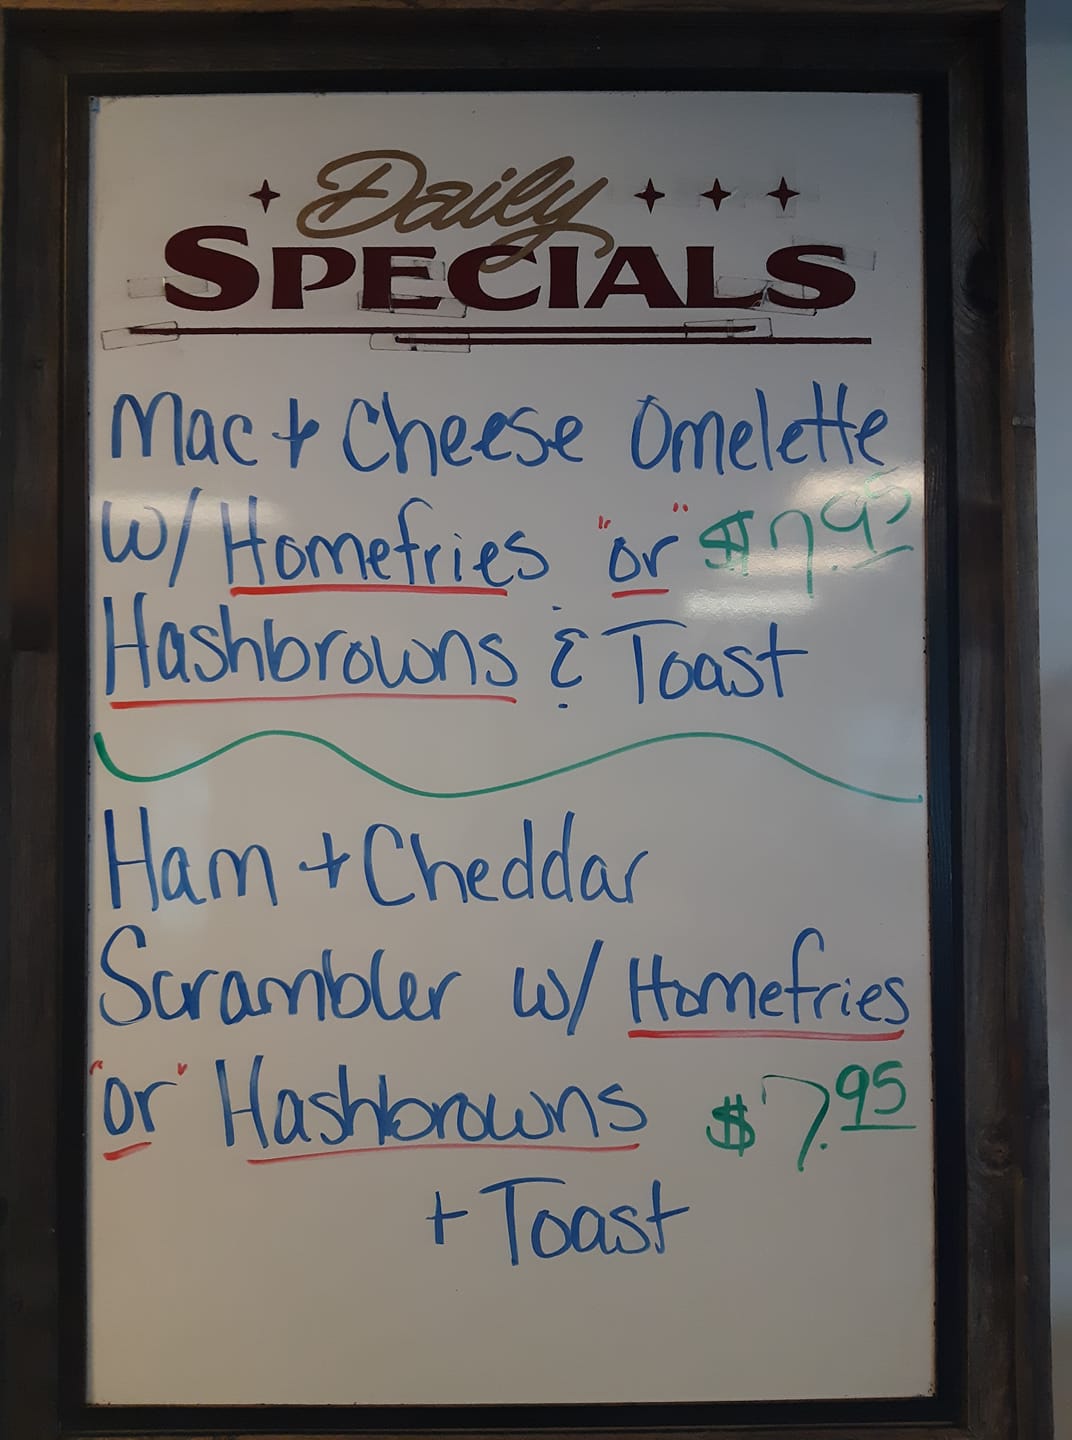 Daily
SPECIALS
Mac + Cheese Omelette
w/ Homefries "or" $7.95
Hashbrowns & Toast
Ham + Cheddar
Scrambler w/ Homefries
"or" Hashbrowns $7.95
+ Toast